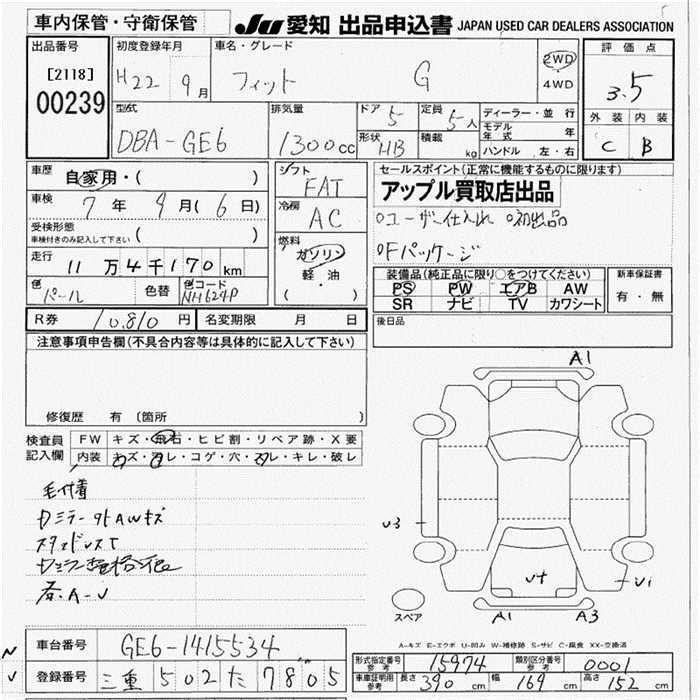 車内保管・守衛保管
JU 愛知 出品申込書 JAPAN USED CAR DEALERS ASSOCIATION
出品番号
[2118]
00239
初度登録年月
H22 9月
車名・グレード
フィット G
2WD
4WD
評価点
3.5
外装 内装
C B
型式
DBA-GE6
排気量
1300cc
ドア 5
形状 HB
定員 5人
積載 kg
ディーラー・並行
モデル年式 年
ハンドル 左・右
車歴
自家用・( )
車検
7年 9月(6日)
受検形態
車検付きのみ記入して下さい ( )
走行
11万4千170km
色
パール
色替
色コード
NH624P
シフト
FAT
冷房
AC
燃料
ガソリン
軽・油
( )
セールスポイント(正常に機能するものに限ります)
アップル買取店出品
○ユーザー仕入れ ○初出品
○Fパッケージ
装備品(純正品に限り○をつけてください)
PS PW エアB AW
SR ナビ TV カワシート
新車保証書
有・無
R券 10,810円
名変期限 月 日
後日品
注意事項申告欄(不具合内容等は具体的に記入して下さい)
修復歴 有 〔箇所 〕
検査員記入欄
FW キズ・飛石・ヒビ割・リペア跡・X要
内装 キズ・ヨゴレ・コゲ・穴・スレ・キレ・破レ
毛付着
ミラー 外AWキズ
A-U
A1
U3
U4
U1
A1
A3
スペア
A-キズ E-エクボ U-凹み W-補修跡 S-サビ C-腐食 XX-交換済
車台番号
GE6-1415534
登録番号
三重 502 た 7805
形式指定番号
参考
15974
類別区分番号
参考
0001
車庫証明用
参考
長さ 390cm
幅 169cm
高さ 152cm